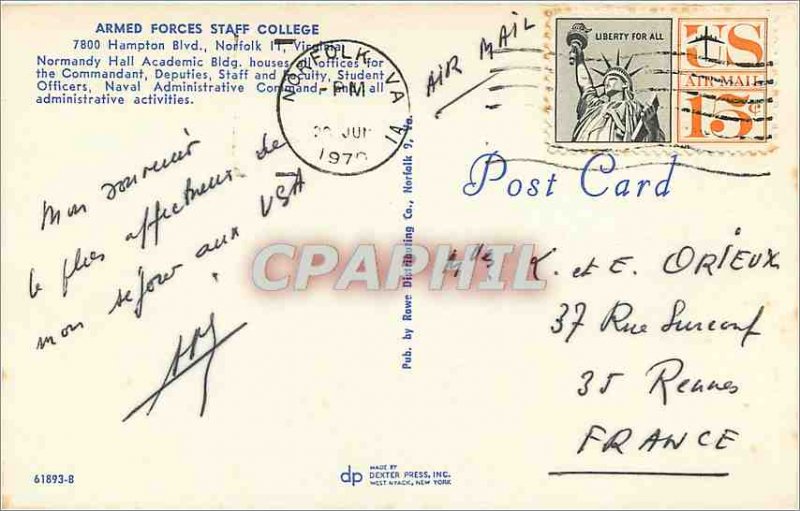 ARMED FORCES STAFF COLLEGE
7800 Hampton Blvd., Norfolk 11, Virginia
Normandy Hall Academic Bldg. houses the offices for
the Commandant, Deputies, Staff and Faculty, Student
Officers, Naval Administrative Command, and all
administrative activities.
NORFOLK, VA
PM
JUN
1970
1A
AIR MAIL
LIBERTY FOR ALL
US
AIR MAIL
15¢
Mon souvenir
le plus affectueux de
mon séjour aux USA
Pub. by Rowe Distributing Co., Norfolk 9, Va.
Post Card
CPAPHIL
Mlles K. et E. ORIEUX
37 Rue Surcouf
35 Rennes
FRANCE
61893-B
dp
MADE BY
DEXTER PRESS, INC.
WEST NYACK, NEW YORK